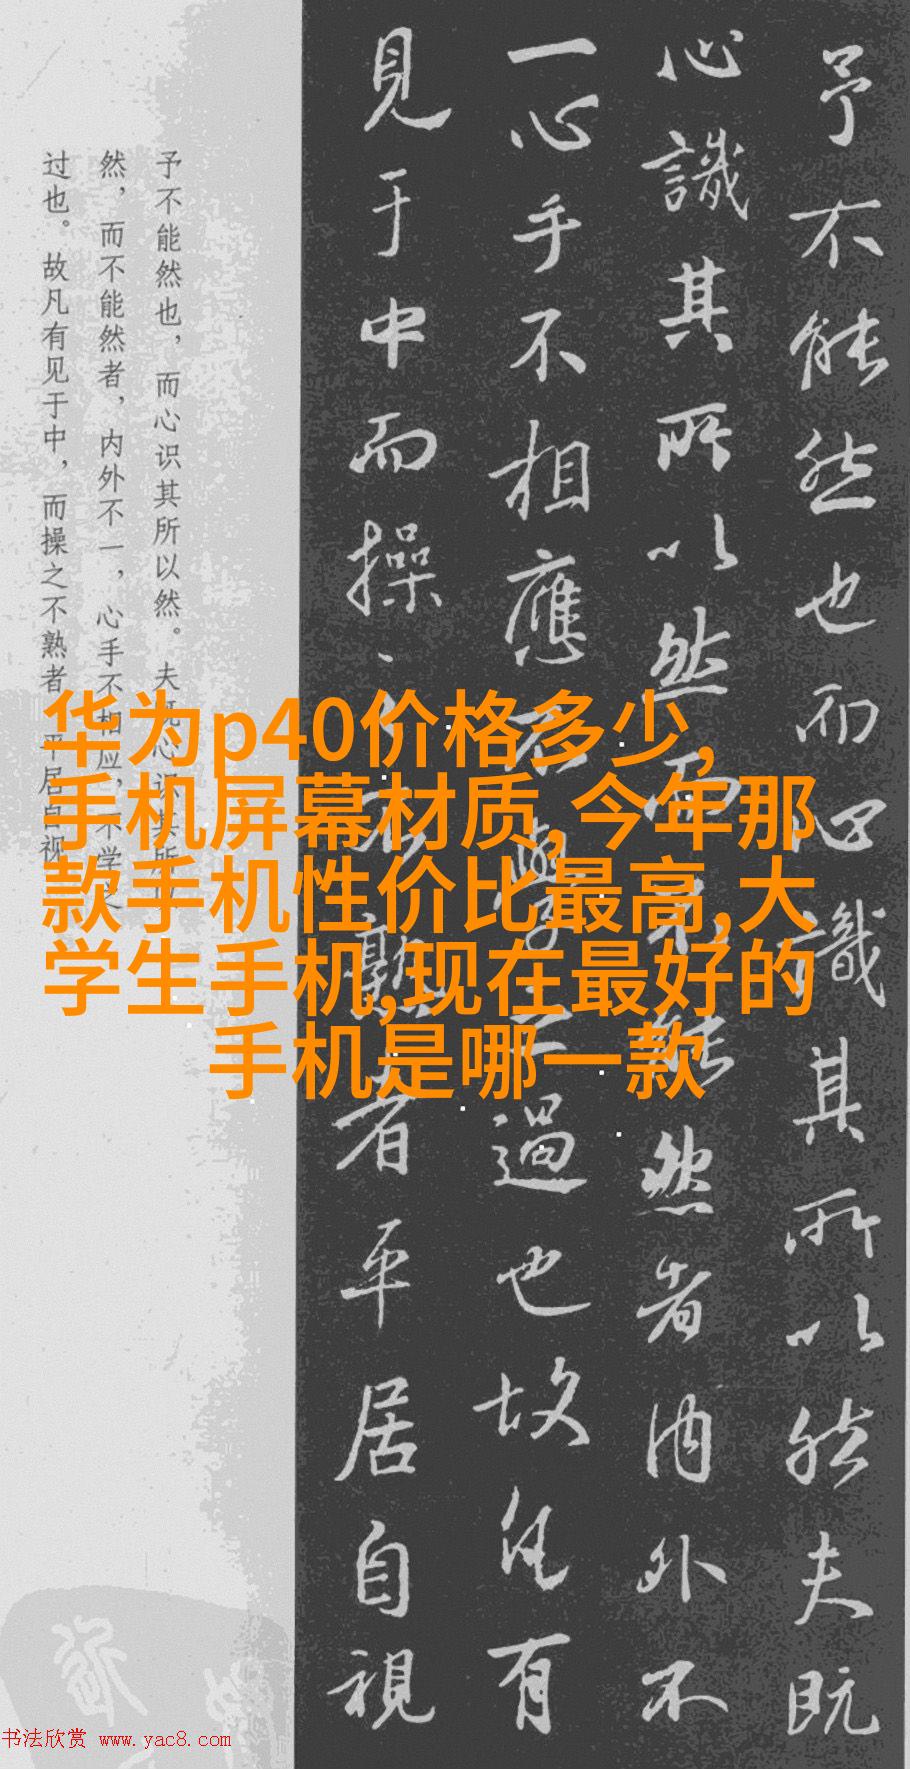 予不能然也而心識其所以然夫既
心識其所以然而不能然者内外不
一心手不相應不學之過也故凡有
見于中而操之不熟者平居自視
予不能然也，而心识其所以然。夫既心识其所
然，而不能然者，内外不一，心手不相应，不学之
过也。故凡有见于中，而操之不熟者，平居自视
华为p40价格多少,
手机屏幕材质,今年那
款手机性价比最高,大
学生手机,现在最好的
手机是哪一款
书法欣赏 www.yac8.com